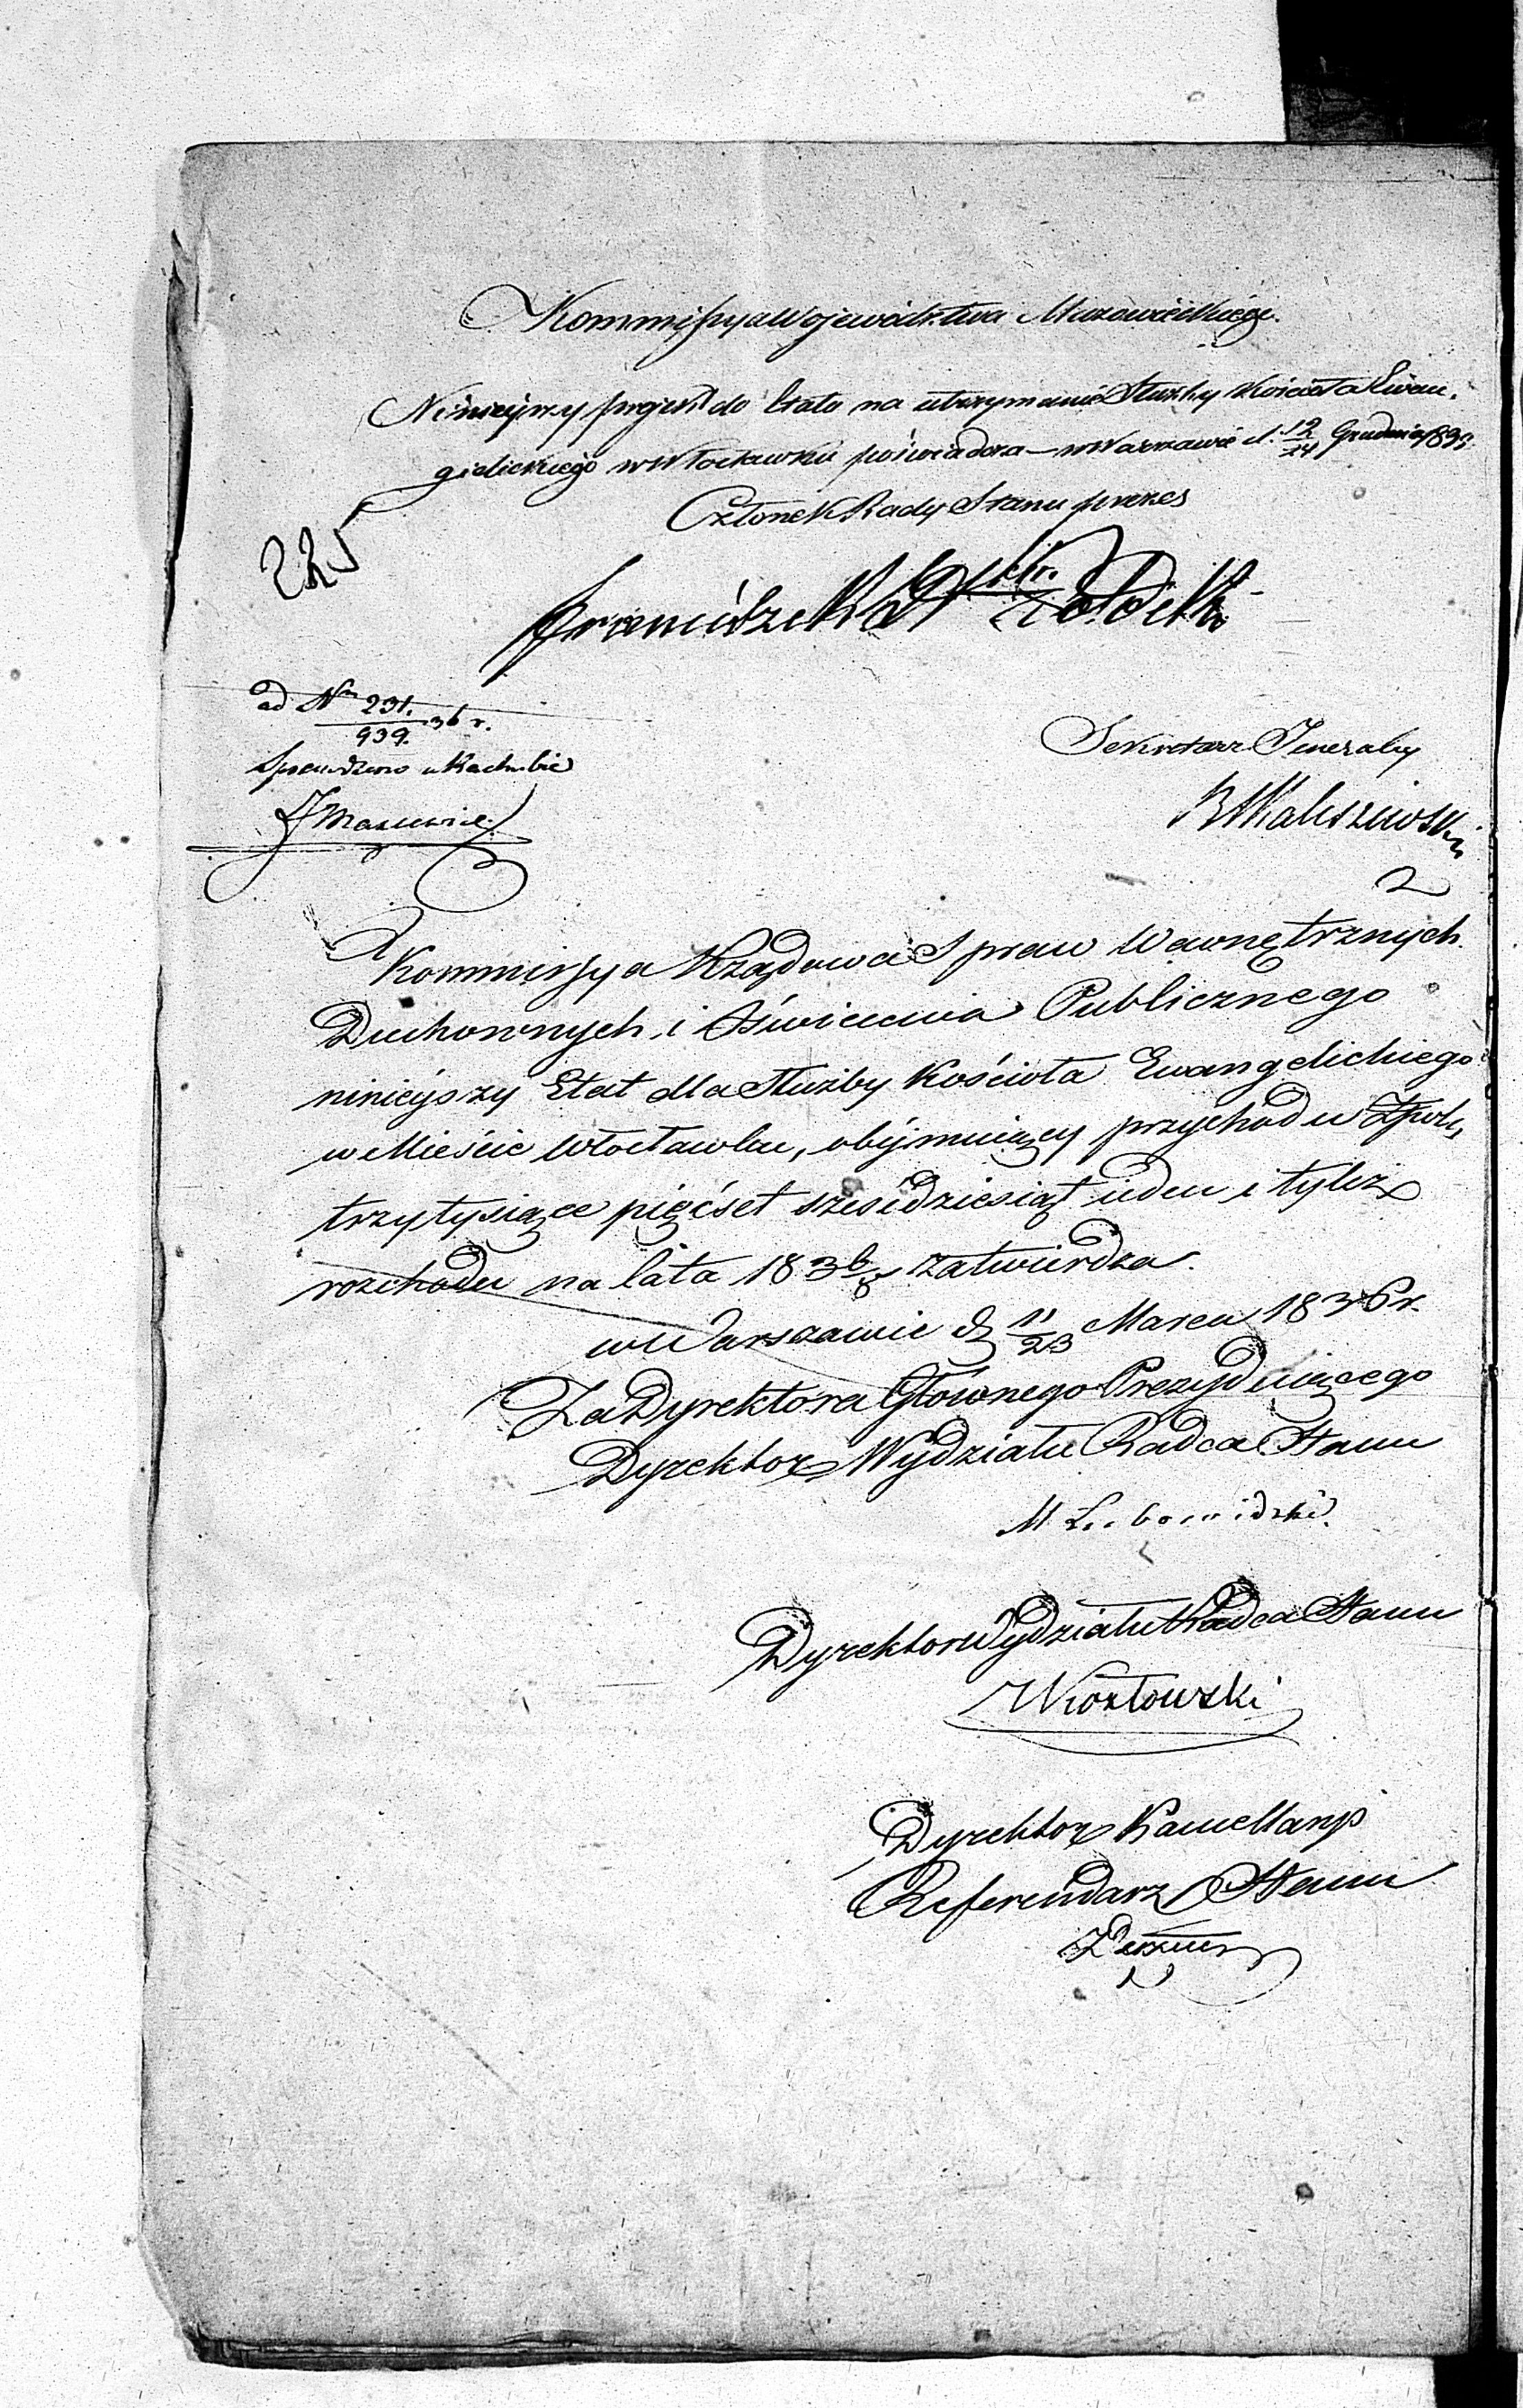 Kommissya Województwa Mazowieckiego.
Ninieyszy projekt do Etatu na utrzymanie Służby Kościoła Ewan-
gielickiego w Włocławku poświadcza — w Warszawie d. 12/24 Grudnia 183
Członek Rady Stanu prezes
225
Franciszek
ad Nr 231./939. 36 r.
Sprawdzono w Rachubie
Sekretarz Jeneralny
2
Kommissya Rządowa Spraw Wewnętrznych
Duchownych i Oświecenia Publicznego
ninieyszy Etat dla Służby Kościoła Ewangelickiego
w Mieście Włocławku, obejmuiący przychodu Złpol:
trzy tysiące pięćset sześćdziesiąt ieden i tyleż
rozchodu na lata 183 6/8 zatwierdza.
w Warszawie d 11/23 Marca 1836 r.
Za Dyrektora Głównego Prezyduiącego
Dyrektor Wydziału Radca Stanu
Dyrektor Wydziału Radca Stanu
Kozłowski
Dyrektor Kancellaryi
Referendarz Stanu